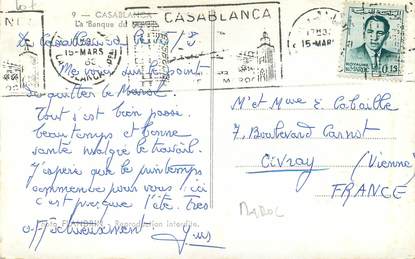 9 — CASABLANCA
La Banque du
CASABLANCA
15-MARS
15-MARS
ROYAUME
0.15
de Casablanca le 15/3/
Me voici sur le point
de quitter le Maroc.
Tout s'est bien passé.
beau temps et bonne
santé malgré le travail.
J'espère que le printemps
commence pour vous, ici
c'est presque l'été. Très
affectueusement
M et Mme E Cabaille
7, Boulevard Carnot
Civray (Vienne)
FRANCE
MAROC
FLANDRIN - Reproduction interdite.